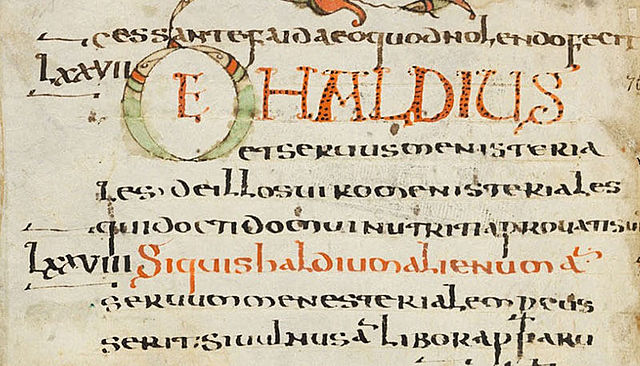 cessante faida eo quod nolendo fecit
LXXVII DE HALDIUS
et seruus menisteria
les; de illos uiro menisteriales
qui docti domui nutriti aprouati su
LXXVIII Si quis haldium alienum a
seruum menesterialem pcus
serit; si uulnus a libor apparu